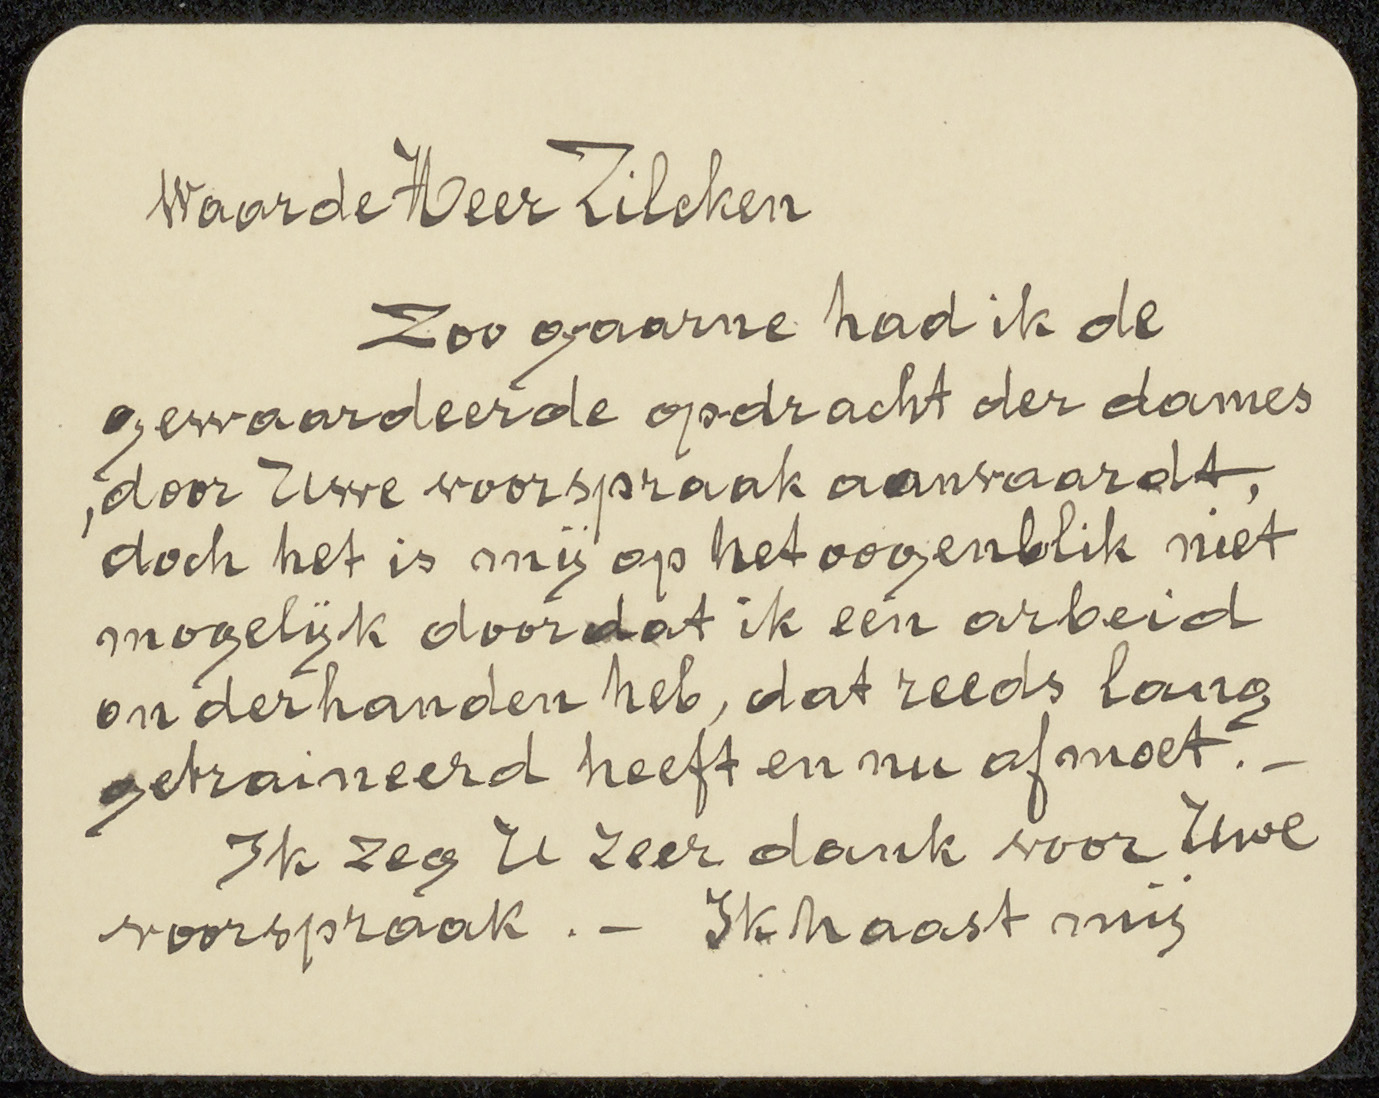 Waarde Heer Zilcken
Zoo gaarne had ik de
gewaardeerde opdracht der dames
, door Uwe voorspraak aanvaardt,
doch het is mij op het oogenblik niet
mogelijk doordat ik een arbeid
onderhanden heb, dat reeds lang
getraineerd heeft en nu af moet. –
Ik zeg U zeer dank voor Uwe
voorspraak . – Ik haast mij